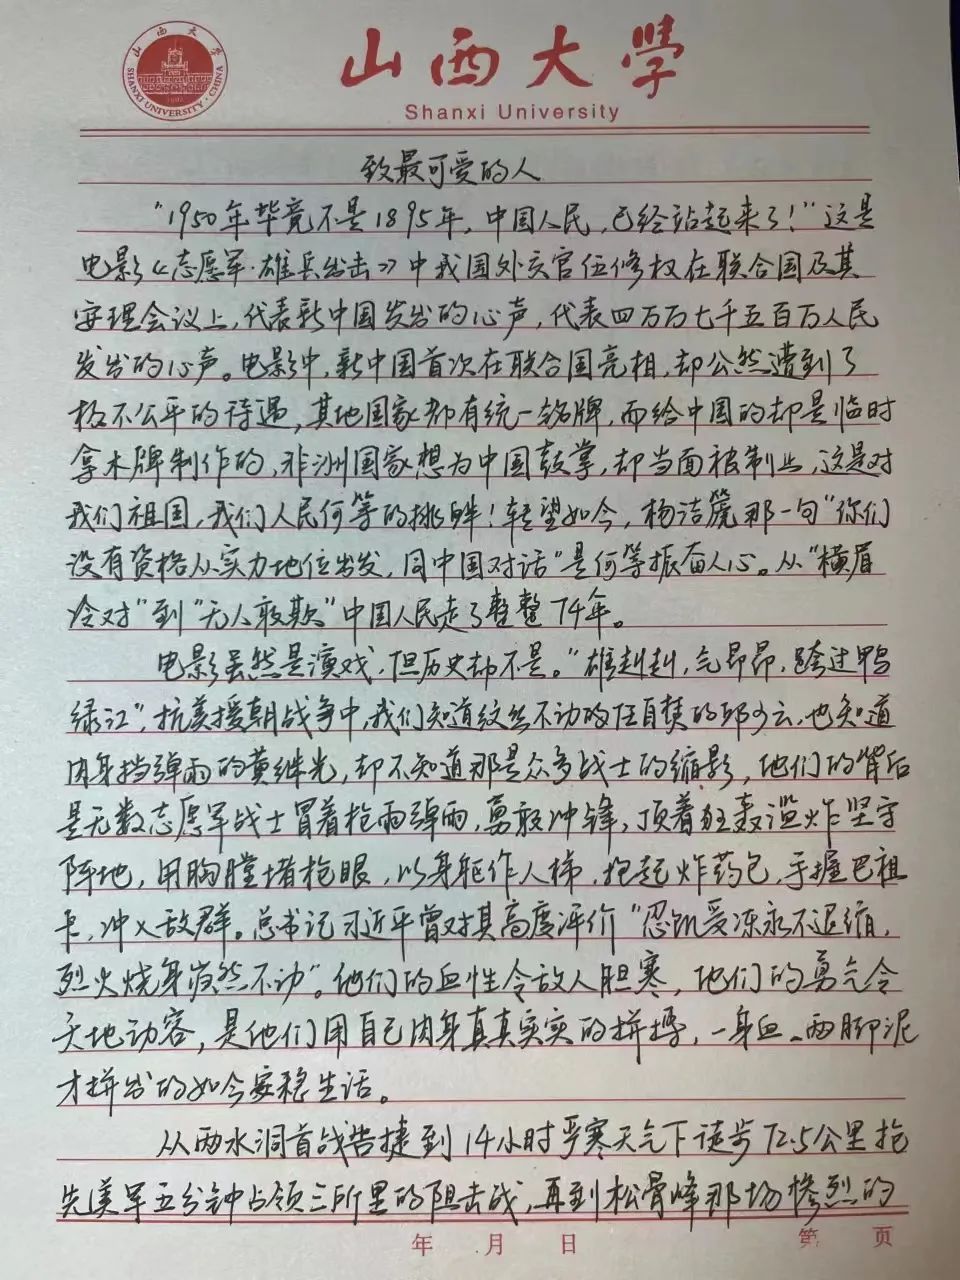 山西大学
Shanxi University
山西大学
SHANXI UNIVERSITY·CHINA
1902
致最可爱的人
"1950年毕竟不是1895年，中国人民，已经站起来了！"这是
电影《志愿军·雄兵出击》中我国外交官伍修权在联合国及其
安理会议上，代表新中国发出的心声，代表四万万七千五百万人民
发出的心声。电影中，新中国首次在联合国亮相，却公然遭到了
极不公平的待遇，其他国家都有统一铭牌，而给中国的却是临时
拿木牌制作的，非洲国家想为中国鼓掌，却当面被制止，这是对
我们祖国，我们人民何等的挑衅！轻望如今，杨洁篪那一句"你们
没有资格从实力地位出发，同中国对话"是何等振奋人心。从"横眉
冷对"到"无人敢欺"中国人民走了整整74年。
电影虽然是演戏，但历史却不是。"雄赳赳，气昂昂，跨过鸭
绿江"，抗美援朝战争中，我们知道纹丝不动的任自焚的邱少云，也知道
肉身挡弹雨的黄继光，却不知道那是众多战士的缩影，他们的背后
是无数志愿军战士冒着枪雨弹雨，勇敢冲锋，顶着狂轰滥炸坚守
阵地，用胸膛堵枪眼，以身躯作人梯，抱起炸药包，手握巴祖
卡，冲入敌群。总书记习近平曾对其高度评价"忍饥受冻永不退缩，
烈火烧身岿然不动"。他们的血性令敌人胆寒，他们的勇气令
天地动容，是他们用自己肉身真真实实的拼搏，一身血、两脚泥
才拼出的如今安稳生活。
从两水洞首战告捷到14小时严寒天气下徒步72.5公里抢
先美军五分钟占领三所里的阻击战，再到松骨峰那场惨烈的
年 月 日
第 页